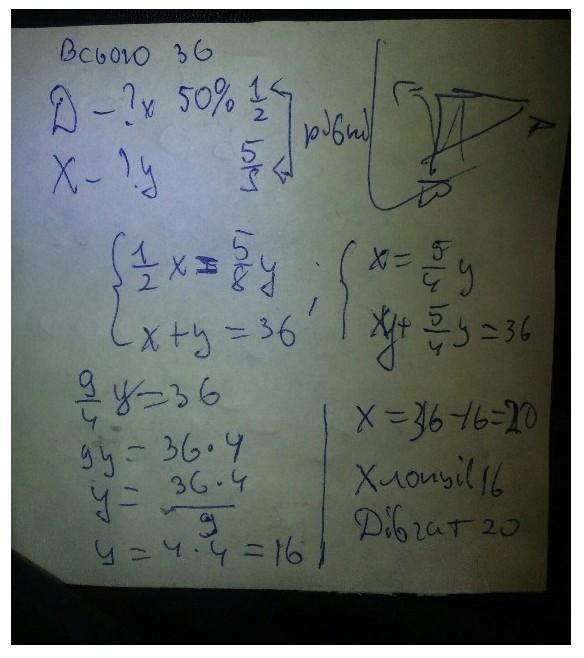 Всього 36
D - ? x 50% 1/2
X - ? y 5/8
рівні
{ 1/2 x = 5/8 y
x + y = 36 ;
{ x = 5/4 y
y + 5/4 y = 36
9/4 y = 36
9y = 36 · 4
y = 36 · 4 / 9
y = 4 · 4 = 16
x = 36 - 16 = 20
Хлопців 16
Дівчат 20